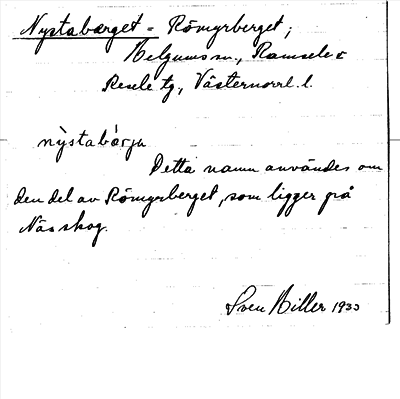 Nystabærget = Römyrberget;
Helgums sn., Ramsele o
Resele tg., Västernorrl. l.
nỳstabǻrja
Detta namn användes om
den del av Römyrberget, som ligger på
Nässkog.
Sven Hiller 1933